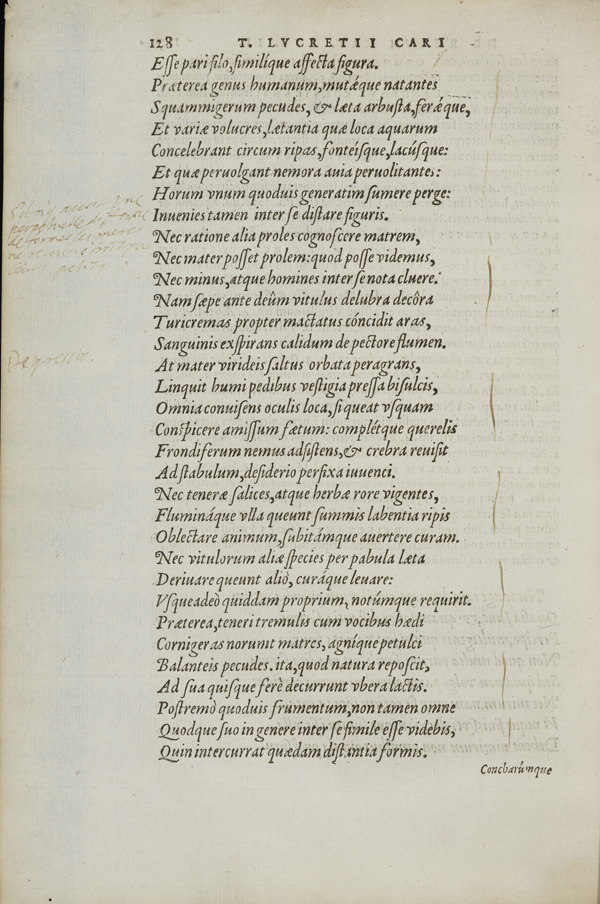 128 T. LVCRETII CARI
Eſſe pari filo, ſimilíque affecta figura.
Præterea genus humanum, mutǽque natantes
Squammigerum pecudes, & læta arbuſta, ferǽ que,
Et variæ volucres, lætantia quæ loca aquarum
Concelebrant circum ripas, fonteíſque, lacúſque:
Et quæ peruolgant nemora auia peruolitantes:
Horum vnum quoduis generatim ſumere perge:
Inuenies tamen inter ſe diſtare figuris.
Nec ratione alia proles cognoſcere matrem,
Nec mater poſſet prolem: quod poſſe videmus,
Nec minus, atque homines inter ſe nota cluere.
Nam ſæpe ante deûm vitulus delubra decôra
Turicremas propter mactatus cóncidit aras,
Sanguinis exſpirans calidum de pectore flumen.
At mater virideis ſaltus orbata peragrans,
Linquit humi pedibus veſtigia preſſa biſulcis,
Omnia conuiſens oculis loca, ſi queat vſquam
Conſpicere amiſſum fætum: complétque querelis
Frondiferum nemus adſiſtens, & crebra reuiſit
Ad ſtabulum, deſiderio perfixa iuuenci.
Nec teneræ ſalices, atque herbæ rore vigentes,
Flumináque vlla queunt ſummis labentia ripis
Oblectare animum, ſubitámque auertere curam.
Nec vitulorum aliæ ſpecies per pabula læta
Deriuare queunt aliò, curáque leuare:
Vſqueadeò quiddam proprium, notúmque requirit.
Præterea, teneri tremulis cum vocibus hædi
Cornigeras norunt matres, agníque petulci
Balanteis pecudes. ita, quod natura repoſcit,
Ad ſua quiſque ferè decurrunt vbera lactis.
Poſtremò quoduis frumentum, non tamen omne
Quodque ſuo in genere inter ſe ſimile eſſe videbis,
Quin intercurrat quædam diſtantia formis.
Concharúmque
Degreſſio.